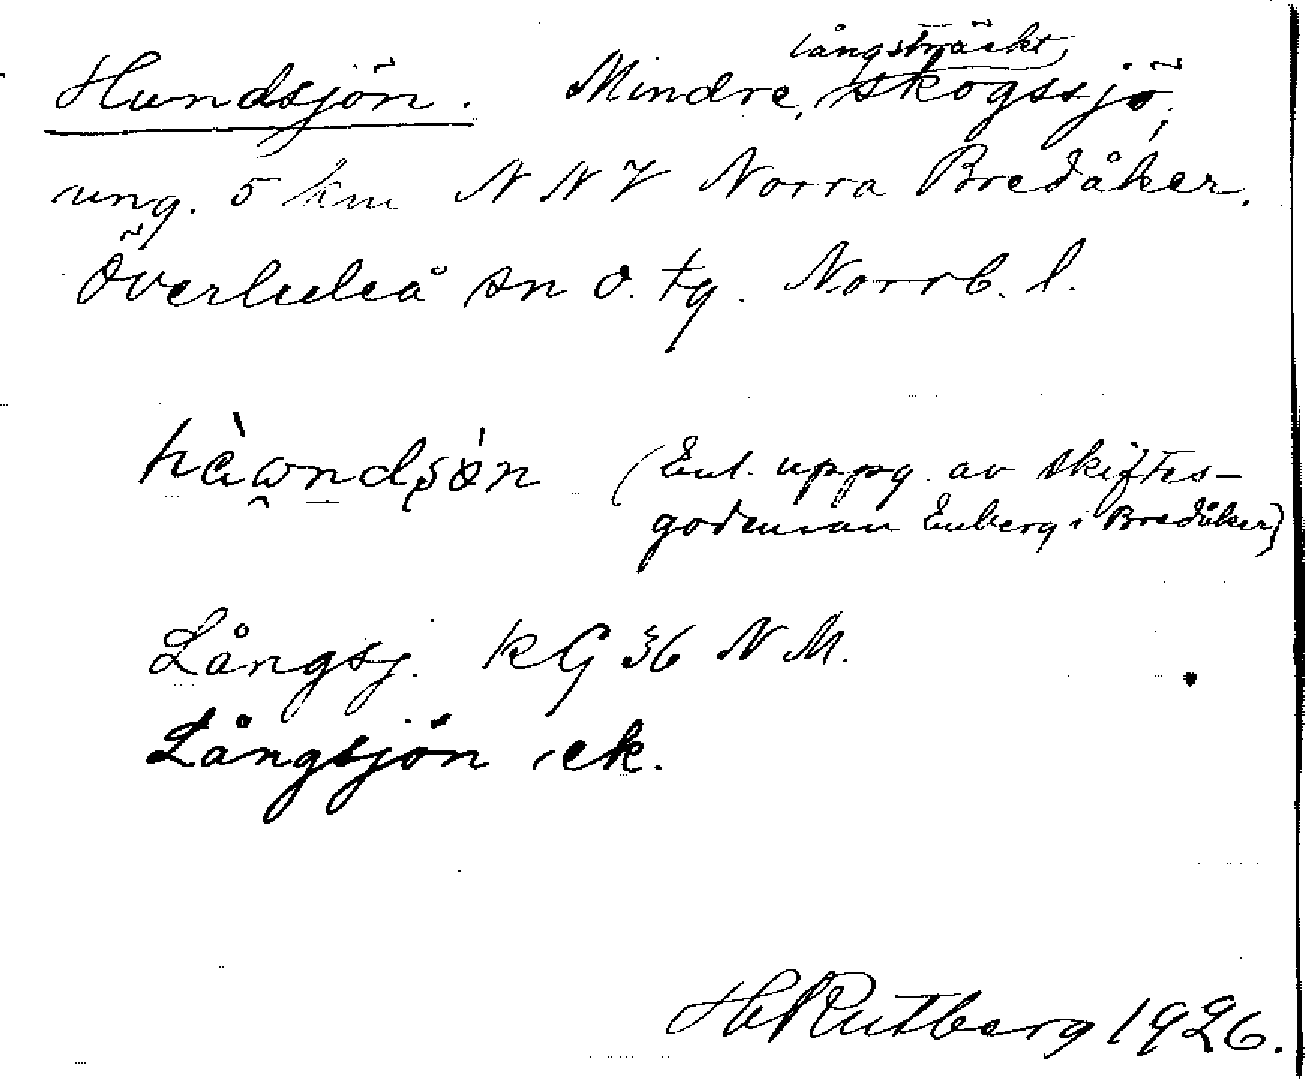 Hundsjön. Mindre, långsträckt, skogssjö,
ung. 5 km NNV Norra Bredåker.
Överluleå sn Ö. tg. Norrb. l.
hàωndsö́n (Enl. uppg. av skiftes-
godeman Enberg i Bredåker)
Långsj. kG 36 NM.
Långsjön, ek.
H Rutberg 1926.